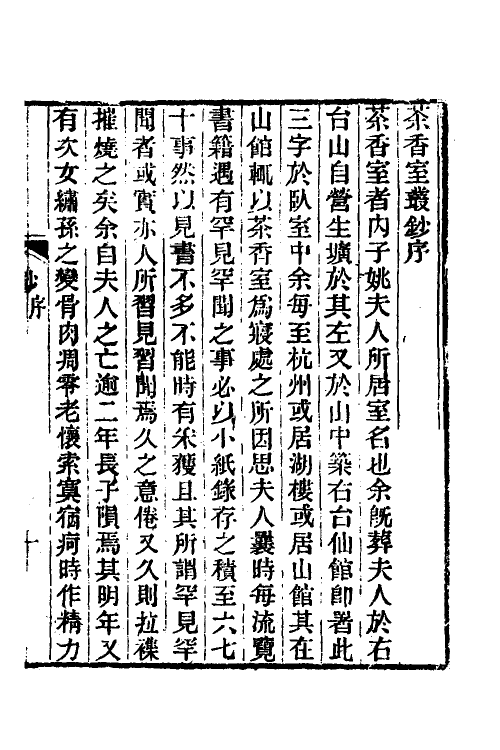 茶香室叢鈔序
茶香室者內子姚夫人所居室名也余旣葬夫人於右
台山自營生壙於其左又於山中築右台仙館卽署此
三字於臥室中余每至杭州或居湖樓或居山館其在
山館輒以茶香室爲寢處之所因思夫人曩時每流覽
書籍遇有罕見罕聞之事必以小紙錄存之積至六七
十事然以見書不多不能時有采獲且其所謂罕見罕
聞者或實亦人所習見習聞焉久之意倦又久則拉襍
摧燒之矣余自夫人之亡逾二年長子隕焉其明年又
有次女繡孫之變骨肉凋零老懷索寞宿疴時作精力
鈔序
一